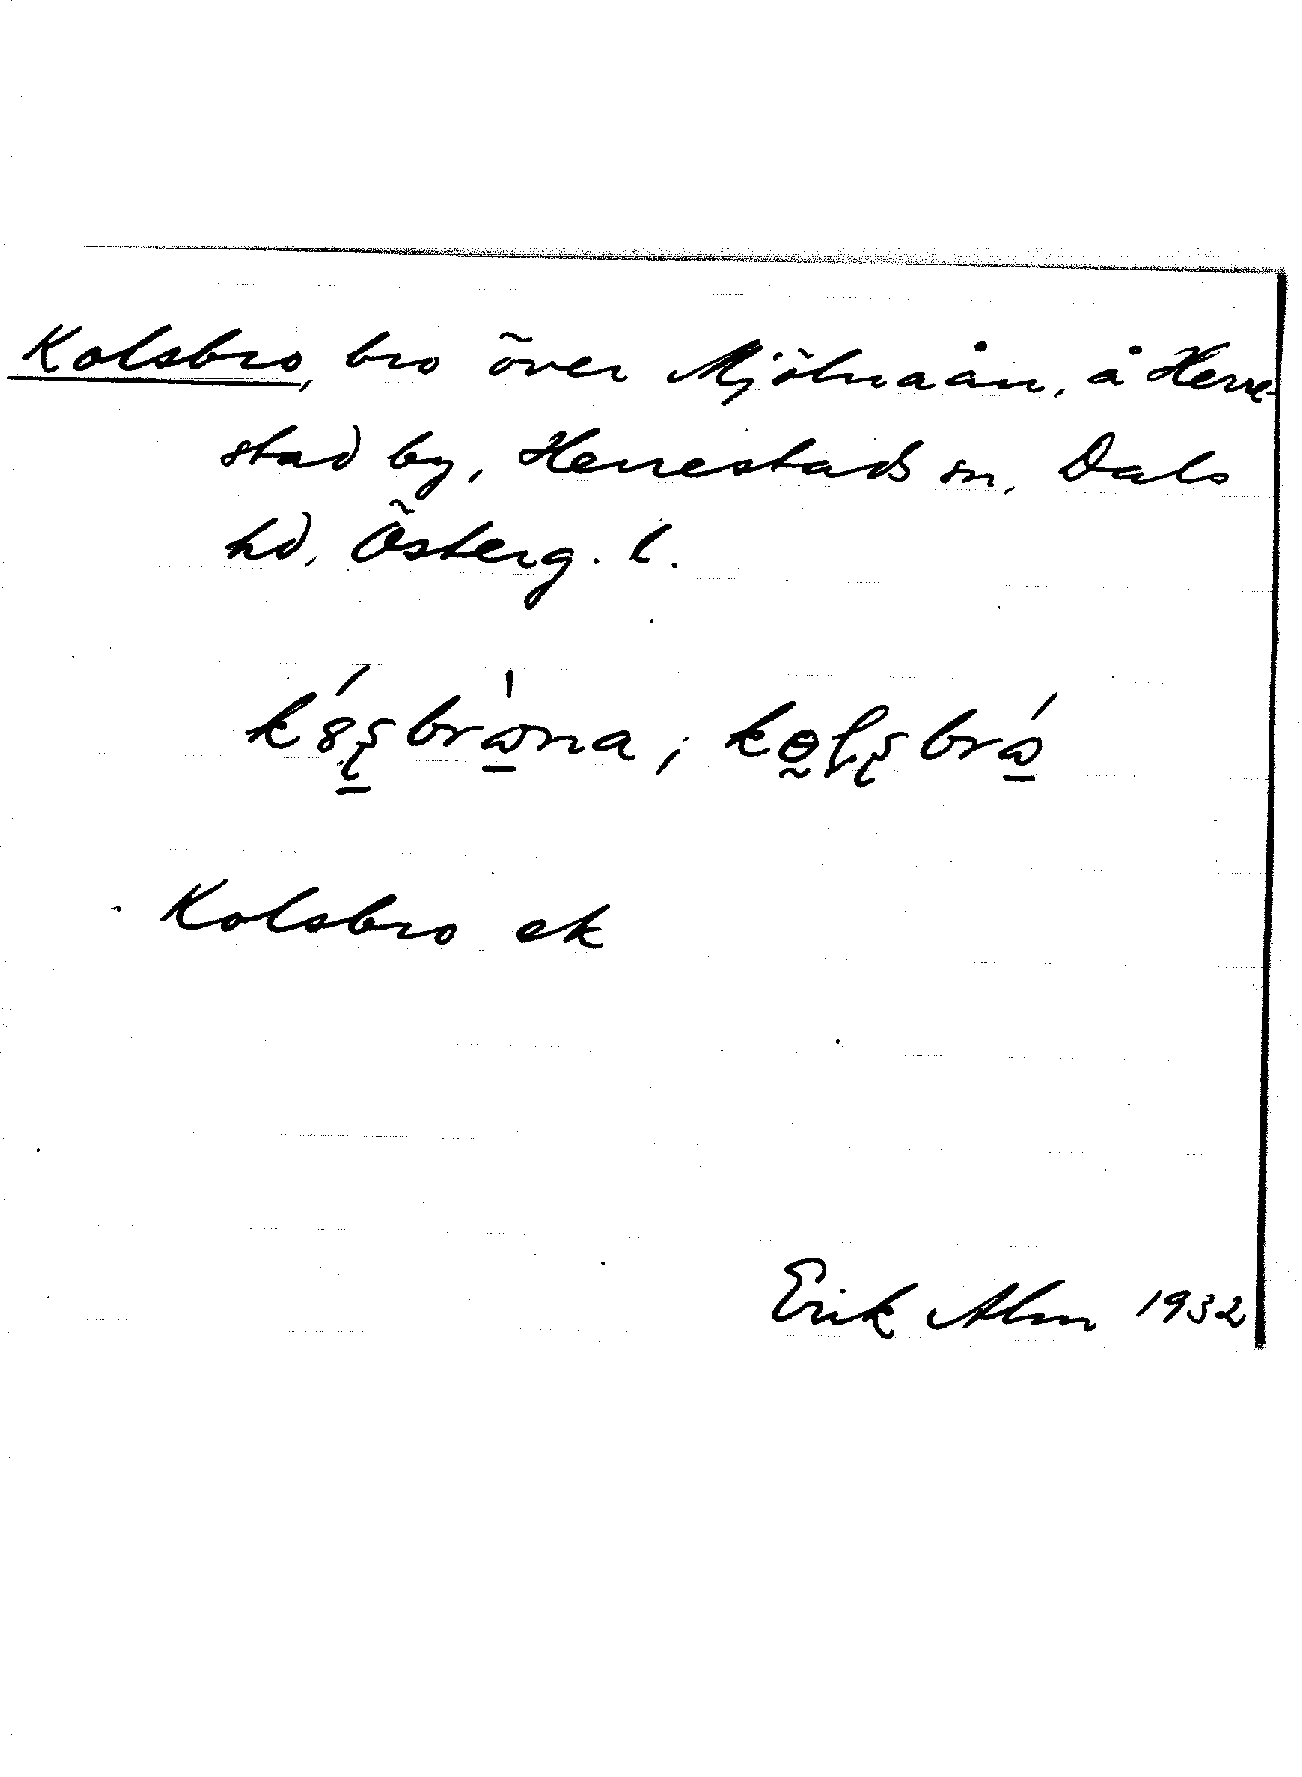 Kolsbro, bro över Mjölnaån, å Herre-
stad by, Herrestads sn, Dals
hd, Österg. l.
Kolsbro ek
Erik Alm 1932